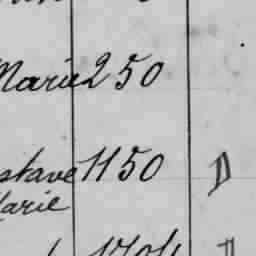 Marie 250
stave 1150 D
Marie